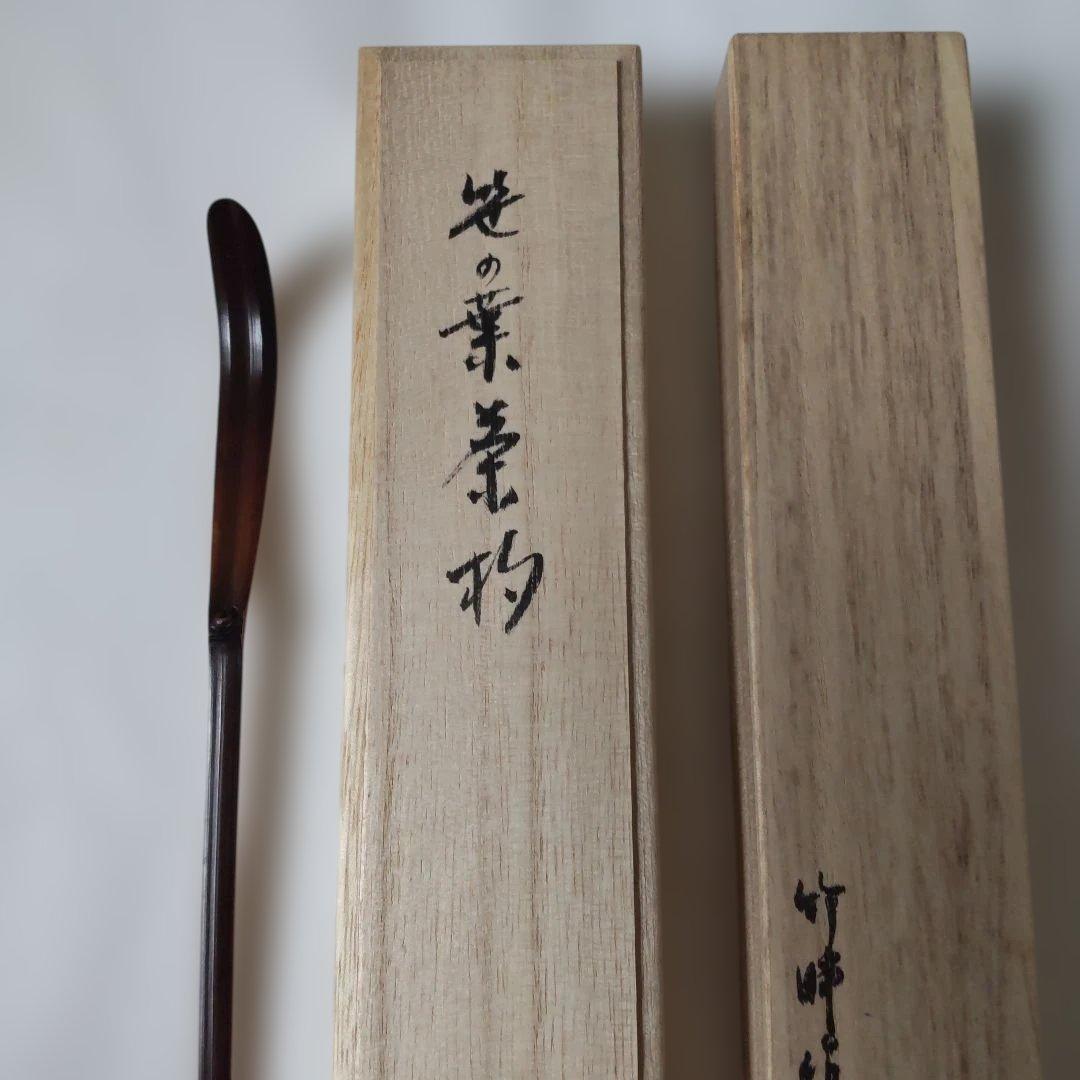 笹の葉茶杓
竹